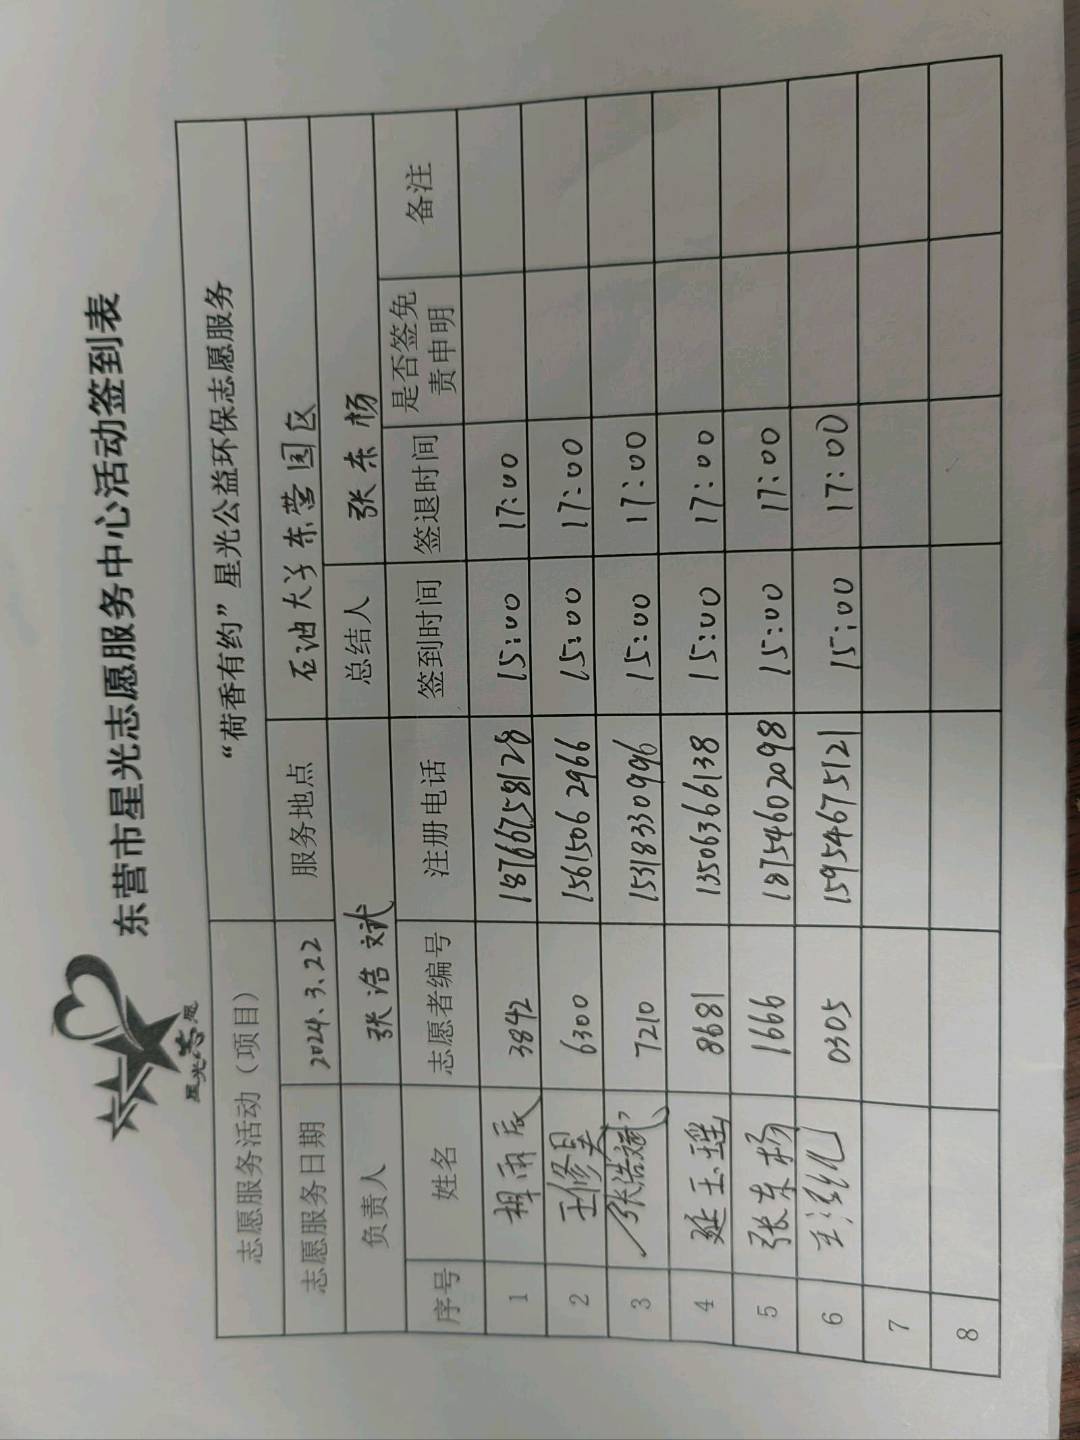 星光志愿
东营市星光志愿服务中心活动签到表
志愿服务活动（项目） “荷香有约”星光公益环保志愿服务
志愿服务日期 2024.3.22 服务地点 石油大学东营园区
负责人 张浩斌 总结人 张东杨
序号 姓名 志愿者编号 注册电话 签到时间 签退时间 是否签免责申明 备注
1 雨辰 3842 18766758128 15:00 17:00
2 王修昊 6300 15615062966 15:00 17:00
3 张浩斌 7210 15318330996 15:00 17:00
4 延玉瑶 8681 13506366138 15:00 17:00
5 张东杨 1666 18754602098 15:00 17:00
6 0305 15954675121 15:00 17:00
7
8